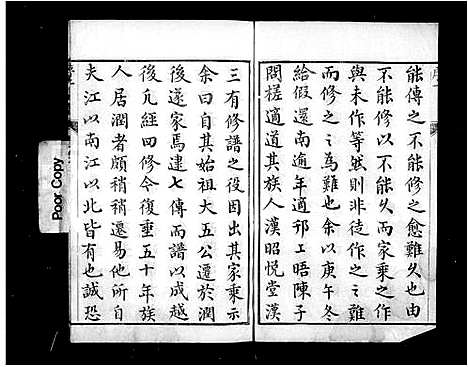 能傳之不能修之愈難久也由
不能修以不能久而家乘之作
與未作等然則非徒作之之難
而修之之為難也余以庚午冬
給假還南逾年適邗工晤陳子
問槎適道其族人漢昭悅堂漢
三有修譜之役因出其家乘示
余曰自其始祖大五公遷於潤
後遂家焉逮七傳而譜以成越
後凡經四修今復垂五十年族
人居潤者頗稍稍遷易他所自
夫江以南江以北皆有也誠恐
序一
Poor Copy